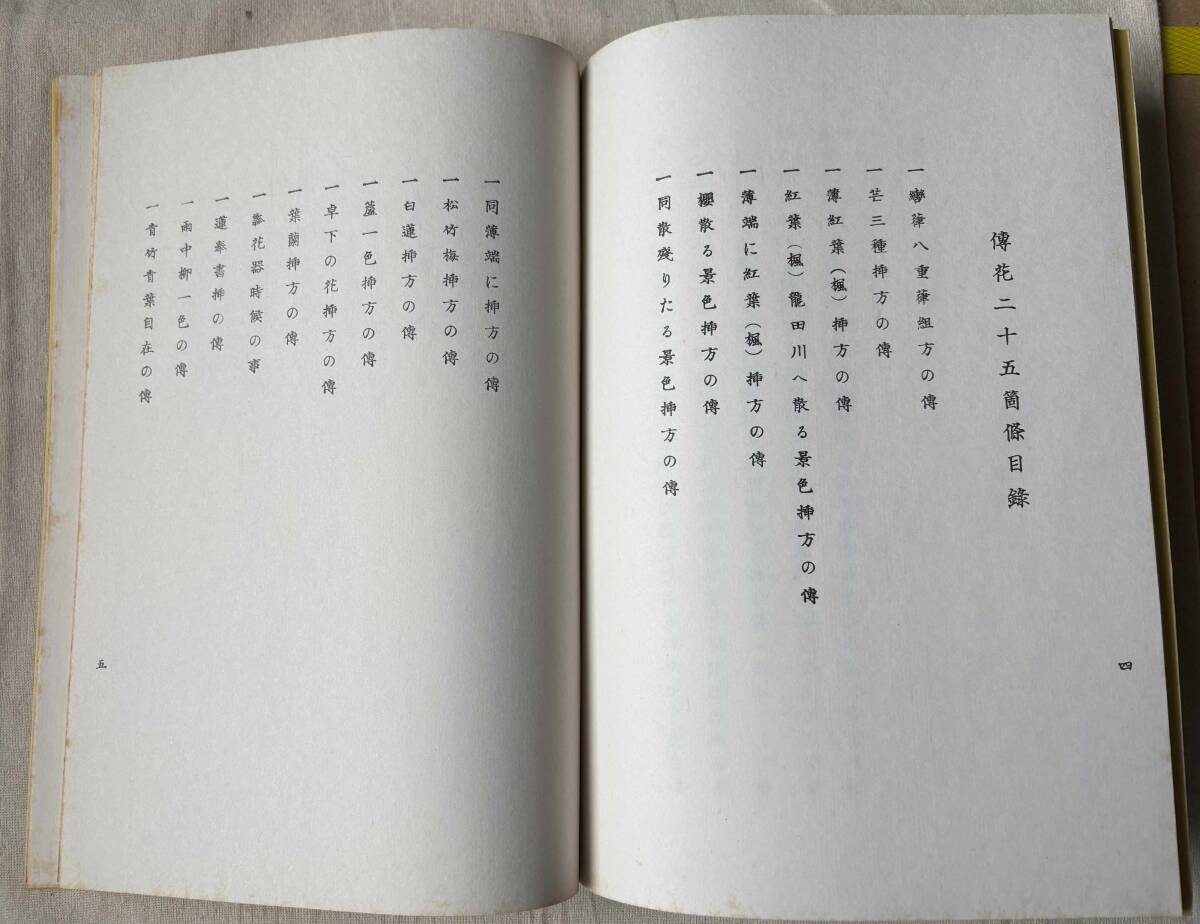 傳花二十五箇條目錄
一轡葎八重葎組方の傳
一芒三種挿方の傳
一薄紅葉(楓)挿方の傳
一紅葉(楓)龍田川へ散る景色挿方の傳
一薄端に紅葉(楓)挿方の傳
一櫻散る景色挿方の傳
一同散殘りたる景色挿方の傳
四
一同薄端に挿方の傳
一松竹梅挿方の傳
一白蓮挿方の傳
一蘆一色挿方の傳
一卓下の花挿方の傳
一葉蘭挿方の傳
一瓢花器時候の事
一蓮奉書挿の傳
一雨中柳一色の傳
一青竹青葉自在の傳
五